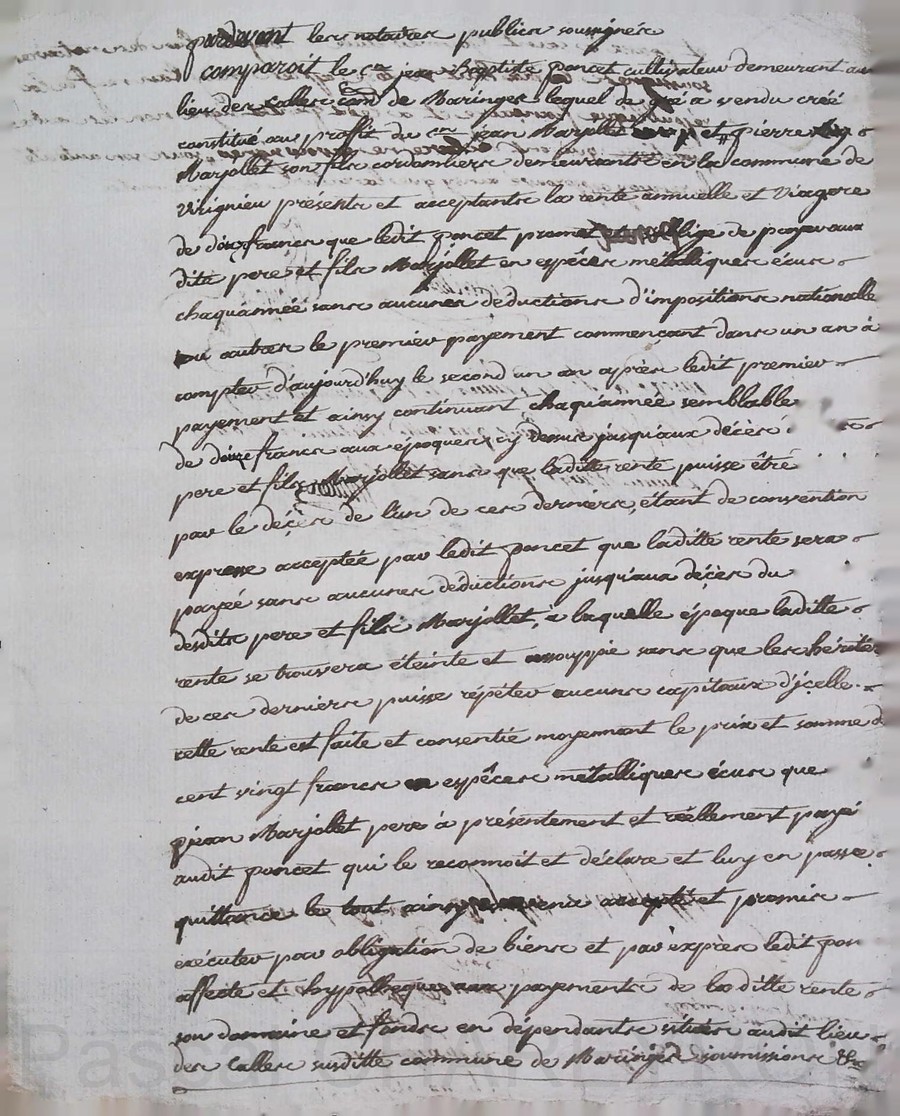 pardevant les notaires publics soussignés
comparoit le cen jean Baptiste poncet cultivateur demeurant au
lieu des Salles cone de Maringes lequel de gré a vendu créé
constitué au profit du cen jean Marjollet et pierre
Marjollet son fils cordonniers demeurants en la commune de
Virignieu présents et acceptants la rente annuelle et viagere
de douze francs que ledit poncet promet et s'oblige de payer aux
dits pere et fils Marjollet en espêces métalliques écus
chaquannéé sans aucunes déductions d'impositions nationalle
ou autres le premier payement commencant dans un an à
compter d'aujourd'huy le second un an après ledit premier
payement et ainsy continuant chaqu'année semblable
de douze francs aux époques cy dessus jusqu'aux décès
pere et fils Marjollet sans que laditte rente puisse être
par le décès de l'un de ces derniers, étant de convention
expresse acceptée par ledit poncet que laditte rente sera
payée sans aucunes déductions jusqu'aux décès du
desdits pere et fils Marjollet, a laquelle époque laditte
rente se trouvera éteinte et assouppie sans que les héritier
de ces derniers puisse répéter aucuns capitaux d'jcelle.
cette rente est faite et consentie moyennant le prix et somme d
cent vingt francs en espêces métalliques écus que
jean Marjollet pere à présentement et réellement payé
audit poncet qui le reconnoit et déclare et luy en passe
quittance le tout ainsy accepté et promis
exécuter par obligation de biens et par exprès ledit pon
affecte et hypotheque aux payements de laditte rente
son domaine et fonds en dépendants situés audit lieu
des Salles susditte commune de Maringes soumissions &a
Pascal CHAR